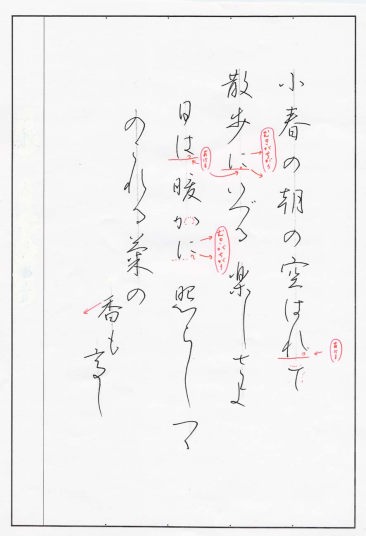 小春の朝の空はれて
散歩にいづる楽しさよ
日は暖かに照らして
のこれる菊の
香も高し